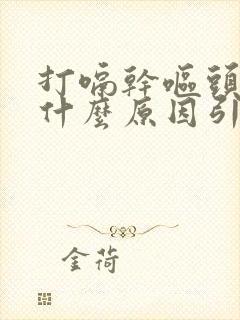 打嗝幹嘔頭
什麼原因引
金荷